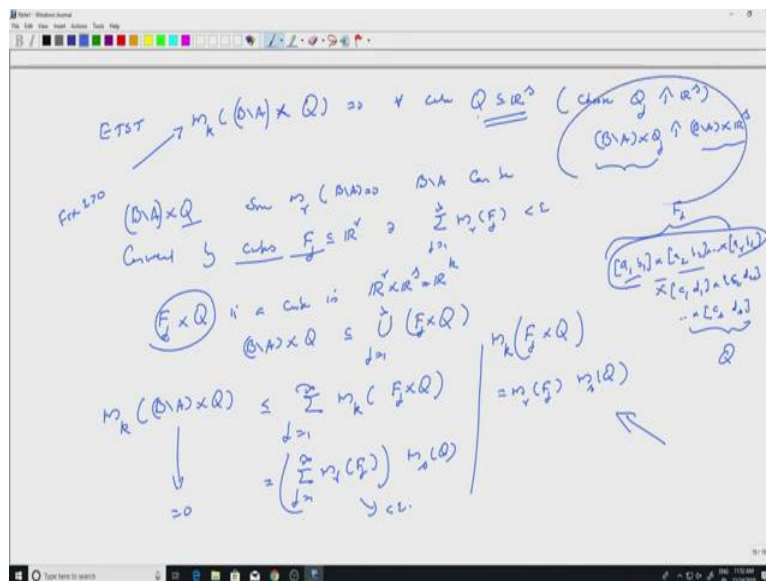 Note1 - Windows Journal
File Edit View Insert Actions Tools Help
ETST m_k((B\A) × Q) = 0 ∀ cube Q ⊆ ℝ^s (choose Q_j ↑ ℝ^s)
(B\A) × Q_j ↑ (B\A) × ℝ^s
Fix ε>0
(B\A) × Q Since m_r(B\A)=0 B\A can be
covered by cubes F_j ⊆ ℝ^r ∋ ∑_{j=1}^∞ m_r(F_j) < ε
F_j
[a_1, b_1] × [a_2, b_2] ... × [a_r, b_r]
× [c_1, d_1] × [c_2, d_2]
... × [c_s, d_s]
Q
F_j × Q is a cube in ℝ^r × ℝ^s = ℝ^k
(B\A) × Q ⊆ ⋃_{j=1}^∞ (F_j × Q)
m_k((B\A) × Q) ≤ ∑_{j=1}^∞ m_k(F_j × Q)
= (∑_{j=1}^∞ m_r(F_j)) m_s(Q)
= 0
< ε.
m_k(F_j × Q)
= m_r(F_j) m_s(Q)
Type here to search
11:52 AM